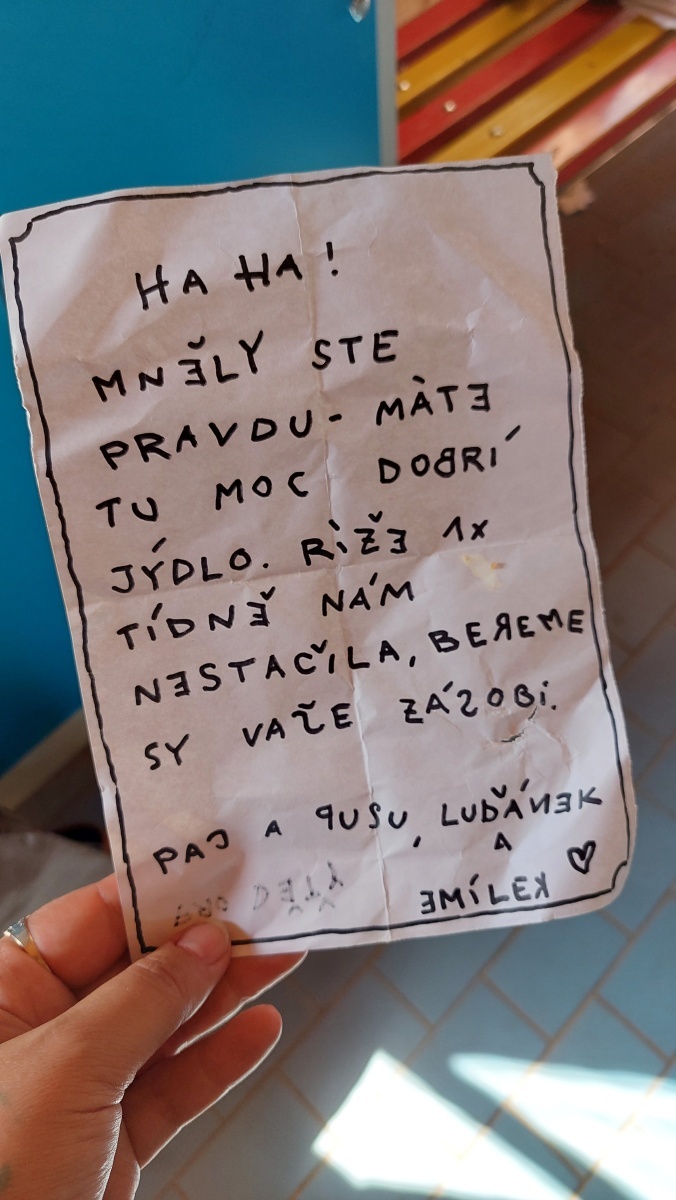 HA HA!
MNĚLY STE
PRAVDU- MÀTE
TU MOC DOBRÍ
JÝDLO. RÌŽE 1X
TÍDNĚ NÁM
NESTAČILA, BEREME
SY VAŠE ZÁSOBI.
PAJ A PUSU, LUĎÁNEK
A
EMÍLEK ♡